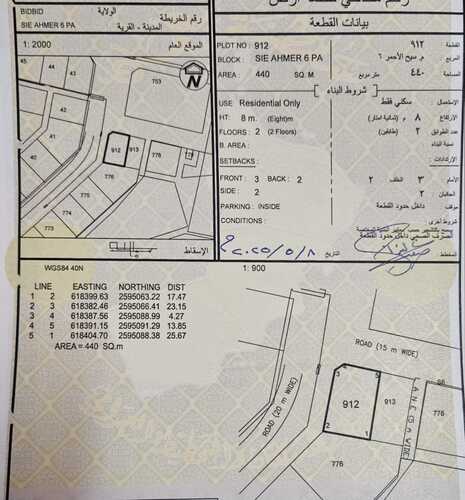 BIDBID
SIE AHMER 6 PA
الولاية
المدينة - القرية
رقم الخريطة
1: 2000
الموقع العام
بيانات القطعة
PLOT NO : 912
القطعة ٩١٢
BLOCK : SIE AHMER 6 PA
م. سيح الأحمر ٦
AREA : 440 SQ. M
٤٤٠ متر مربع
شروط البناء
USE: Residential Only
الإستعمال : سكني فقط
HT: 8 m. (Eight)m
الإرتفاع ٨ م (ثمانية امتار)
FLOORS : 2 (2 Floors)
عدد الطوابق ٢ (طابقين)
B. AREA :
نسبة البناء
SETBACKS :
الإرتدادات :
FRONT : 3 BACK : 2
الأمام ٣ الخلف ٢
SIDE : 2
الجانبان ٢
PARKING : INSIDE
موقف داخل حدود القطعة
CONDITIONS :
شروط أخرى
الصرف الصحي داخل حدود القطعة
التاريخ
المخطط
الإسقاط
753
45
44
43
42
41
40
912
913
778
776
776
775
774
773
WGS84 40N
1 : 900
LINE EASTING NORTHING DIST
1 2 618399.63 2595063.22 17.47
2 3 618382.46 2595066.41 23.15
3 4 618387.56 2595088.99 4.27
4 5 618391.15 2595091.29 13.85
5 1 618404.70 2595088.38 25.67
AREA = 440 SQ.m
ROAD (15 m WIDE)
ROAD (20 m WIDE)
LANE (5 m WIDE)
3
4
5
912
913
2
1
776
776